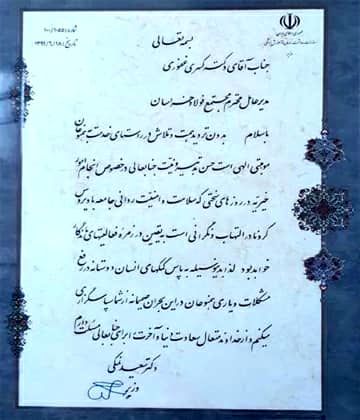 بسمه تعالی
شماره: ۱۰۰/۱۰۵۵
تاریخ: ۱۳۹۹/۶/۱۸
جناب آقای دکتر کسری غفوری
مدیر عامل محترم مجتمع فولاد خراسان
با سلام بدون تردید همت و تلاش در راستای خدمت به همنوعان
موهبتی الهی است حسن تدبیر و موفقیت جنابعالی در خصوص انجام امور
خیریه در روزهای سختی که سلامت و امنیت روانی جامعه با ویروس
کرونا در التهاب و نگرانی است به یقین در زمره فعالیتهای ماندگار
خواهد بود لذا بدینوسیله به پاس کمکهای انسان دوستانه در رفع
مشکلات و یاری همنوعان در این بحران صمیمانه از شما سپاسگزاری
میکنم و از خداوند متعال سعادت دنیا و آخرت برای جنابعالی مسئلت دارم
دکتر سعید نمکی
وزیر